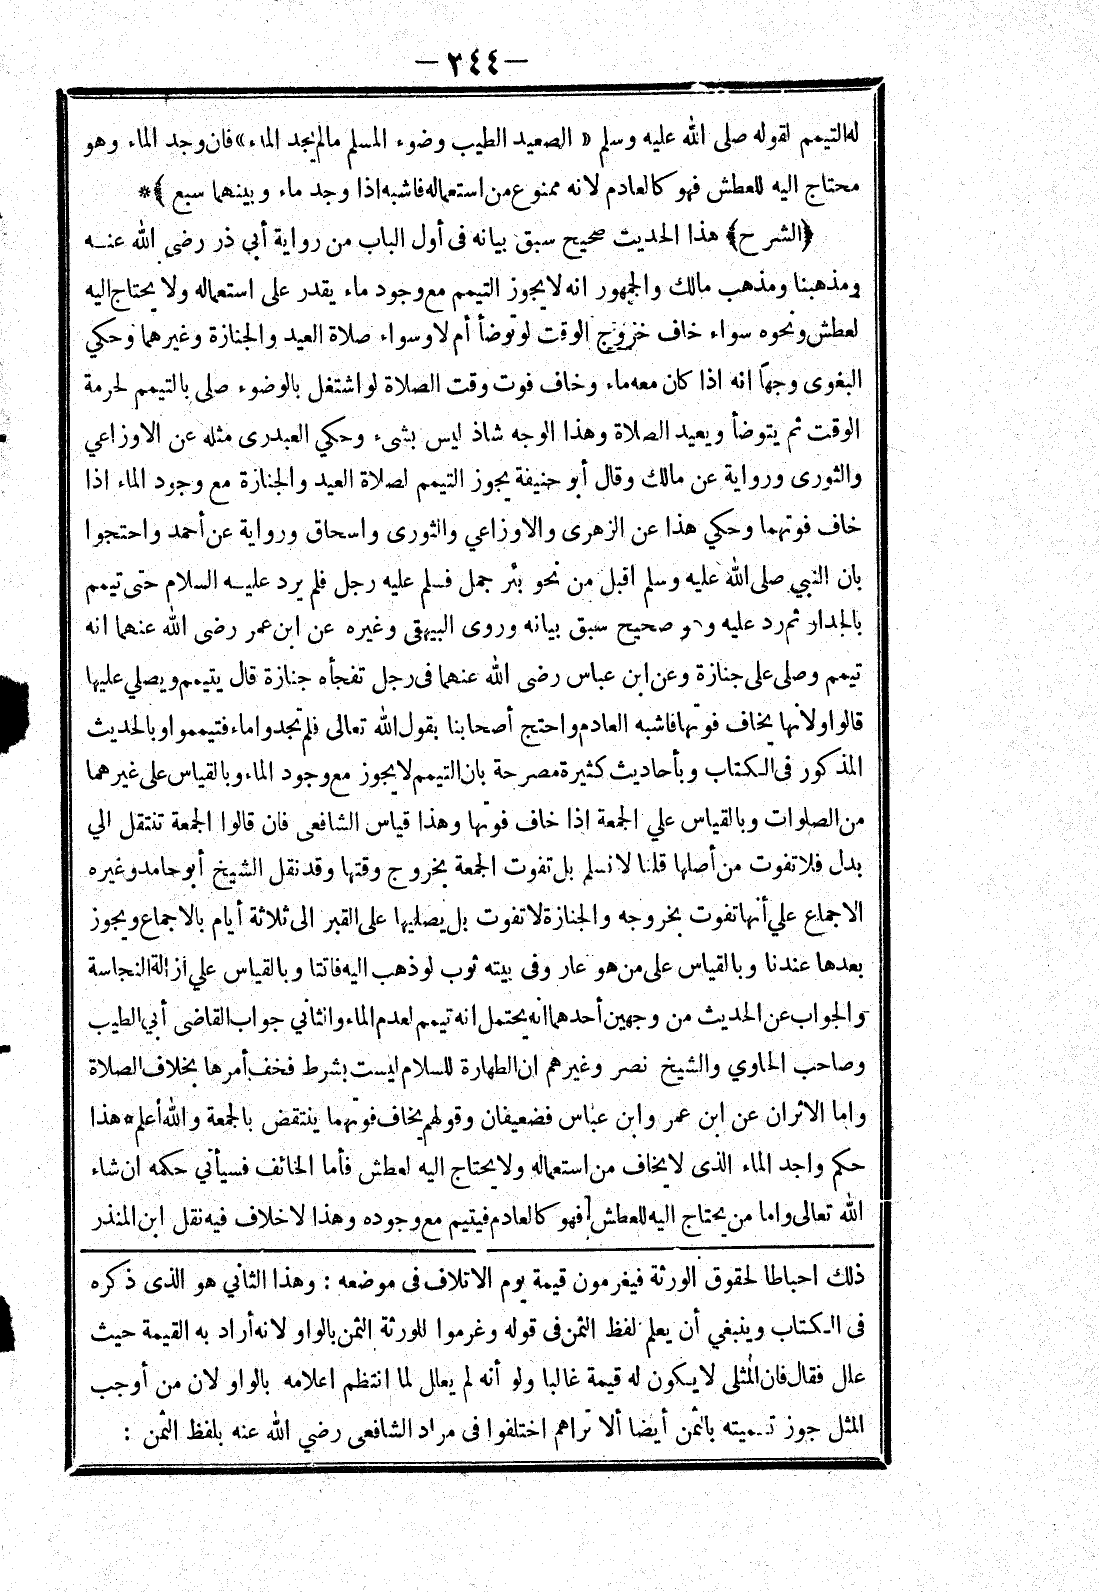 — ٢٤٤ —
له التيمم لقوله صلى الله عليه وسلم « الصعيد الطيب وضوء المسلم مالم يجد الماء » فان وجد الماء وهو
محتاج اليه للعطش فهو كالعادم لانه ممنوع من استعماله فاشبه اذا وجد ماء وبينهما سبع ﴾ *
﴿ الشرح ﴾ هذا الحديث صحيح سبق بيانه فى أول الباب من رواية أبي ذر رضي الله عنه
ومذهبنا ومذهب مالك والجمهور انه لا يجوز التيمم مع وجود ماء يقدر على استعماله ولا يحتاج اليه
لعطش ونحوه سواء خاف خروج الوقت لو توضأ أم لا وسواء صلاة العيد والجنازة وغيرهما وحكي
البغوى وجهاً انه اذا كان معه ماء وخاف فوت وقت الصلاة لو اشتغل بالوضوء صلى بالتيمم لحرمة
الوقت ثم يتوضأ ويعيد الصلاة وهذا الوجه شاذ ليس بشىء وحكي العبدرى مثله عن الاوزاعي
والثورى ورواية عن مالك وقال أبو حنيفة يجوز التيمم لصلاة العيد والجنازة مع وجود الماء اذا
خاف فوتهما وحكي هذا عن الزهرى والاوزاعي والثورى واسحاق ورواية عن أحمد واحتجوا
بان النبي صلى الله عليه وسلم اقبل من نحو بئر جمل فسلم عليه رجل فلم يرد عليه السلام حتى تيمم
بالجدار ثم رد عليه وهو صحيح سبق بيانه وروى البيهقى وغيره عن ابن عمر رضى الله عنهما انه
تيمم وصلى على جنازة وعن ابن عباس رضى الله عنهما فى رجل تفجأه جنازة قال يتيمم ويصلي عليها
قالوا ولانها يخاف فوتها فاشبه العادم واحتج أصحابنا بقول الله تعالى فلم تجدوا ماء فتيمموا وبالحديث
المذكور فى الكتاب وبأحاديث كثيرة مصرحة بان التيمم لا يجوز مع وجود الماء وبالقياس على غيرهما
من الصلوات وبالقياس علي الجمعة اذا خاف فوتها وهذا قياس الشافعى فان قالوا الجمعة تنتقل الي
بدل فلا تفوت من أصلها قلنا لا نسلم بل تفوت الجمعة بخروج وقتها وقد نقل الشيخ أبو حامد وغيره
الاجماع علي أنها تفوت بخروجه والجنازة لا تفوت بل يصليها على القبر الى ثلاثة أيام بالاجماع ويجوز
بعدها عندنا وبالقياس على من هو عار وفى بيته ثوب لو ذهب اليه فاتتا وبالقياس علي ازالة النجاسة
والجواب عن الحديث من وجهين أحدهما انه يحتمل انه تيمم لعدم الماء والثاني جواب القاضى أبي الطيب
وصاحب الحاوي والشيخ نصر وغيرهم ان الطهارة للسلام ليست بشرط فخف أمرها بخلاف الصلاة
واما الاثران عن ابن عمر وابن عباس فضعيفان وقولهم يخاف فوتهما ينتقض بالجمعة والله أعلم * هذا
حكم واجد الماء الذى لا يخاف من استعماله ولا يحتاج اليه لعطش فأما الخائف فسيأتي حكمه ان شاء
الله تعالى واما من يحتاج اليه للعطش فهو كالعادم فيتيمم مع وجوده وهذا لا خلاف فيه نقل ابن المنذر
ذلك احباطا لحقوق الورثة فيغرمون قيمة يوم الاتلاف فى موضعه : وهذا الثاني هو الذى ذكره
فى الكتاب وينبغي أن يعلم لفظ الثمن فى قوله وغرموا للورثة الثمن بالواو لانه أراد به القيمة حيث
علل فقال فان المثلى لا يكون له قيمة غالبا ولو أنه لم يعلل لما انتظم اعلامه بالواو لان من أوجب
المثل جوز تسميته بالثمن أيضا ألا تراهم اختلفوا فى مراد الشافعى رضي الله عنه بلفظ الثمن :